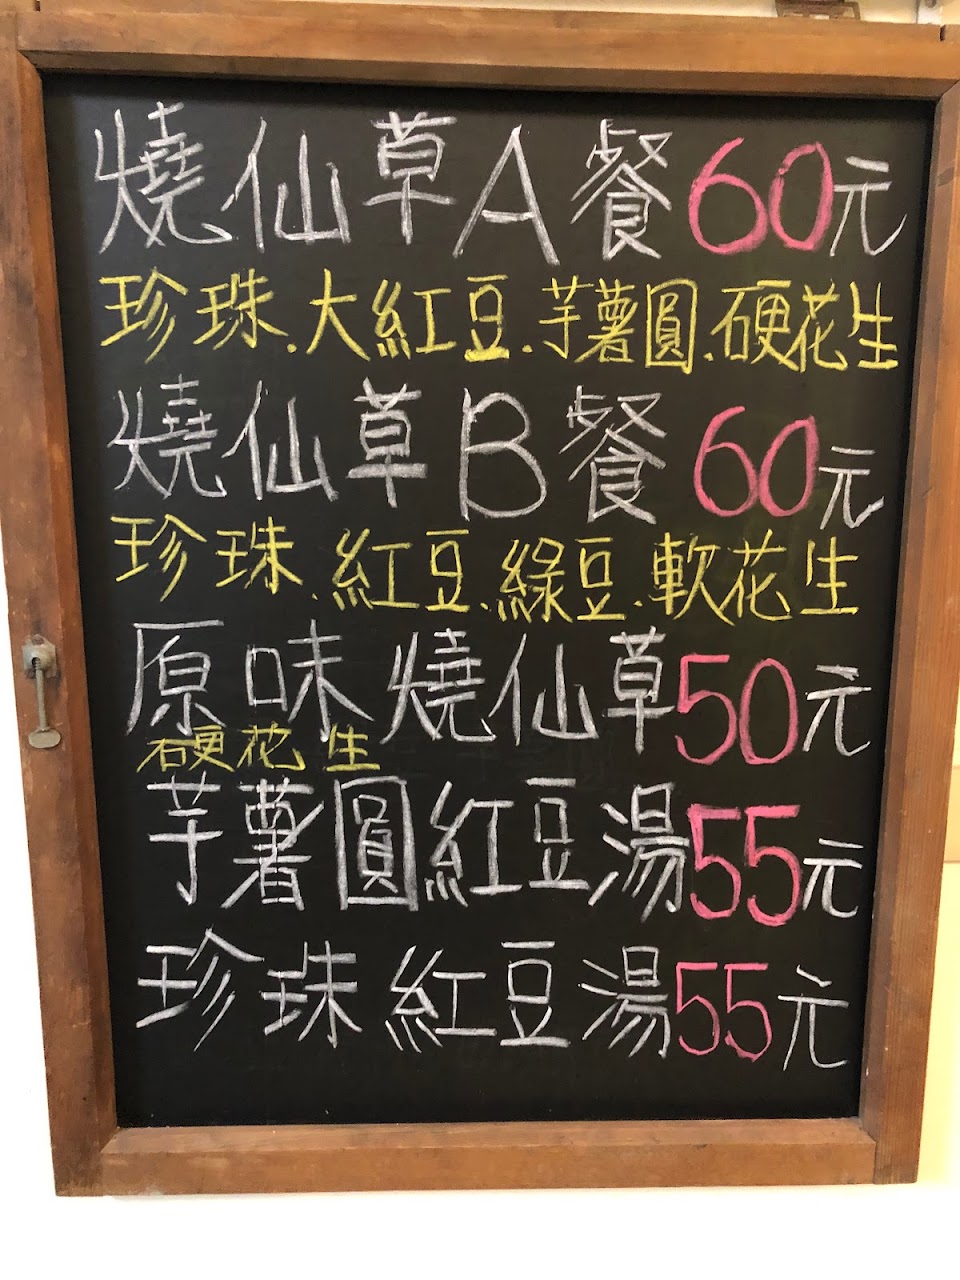 燒仙草A餐60元
珍珠.大紅豆.芋薯圓.硬花生
燒仙草B餐60元
珍珠.紅豆.綠豆.軟花生
原味燒仙草50元
硬花生
芋薯圓紅豆湯55元
珍珠紅豆湯55元